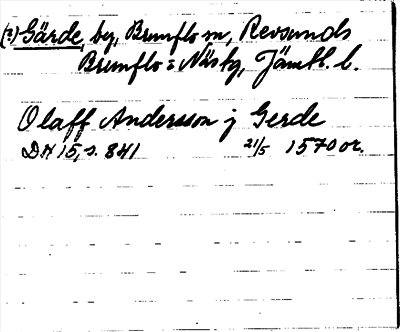 (?) Gärde, by, Brunflo sn, Revsunds
Brunflo o. Näs tg, Jämtl. l.
Olaff Andersson j Gerde
DN 15, s. 841 21/5 1570 or.